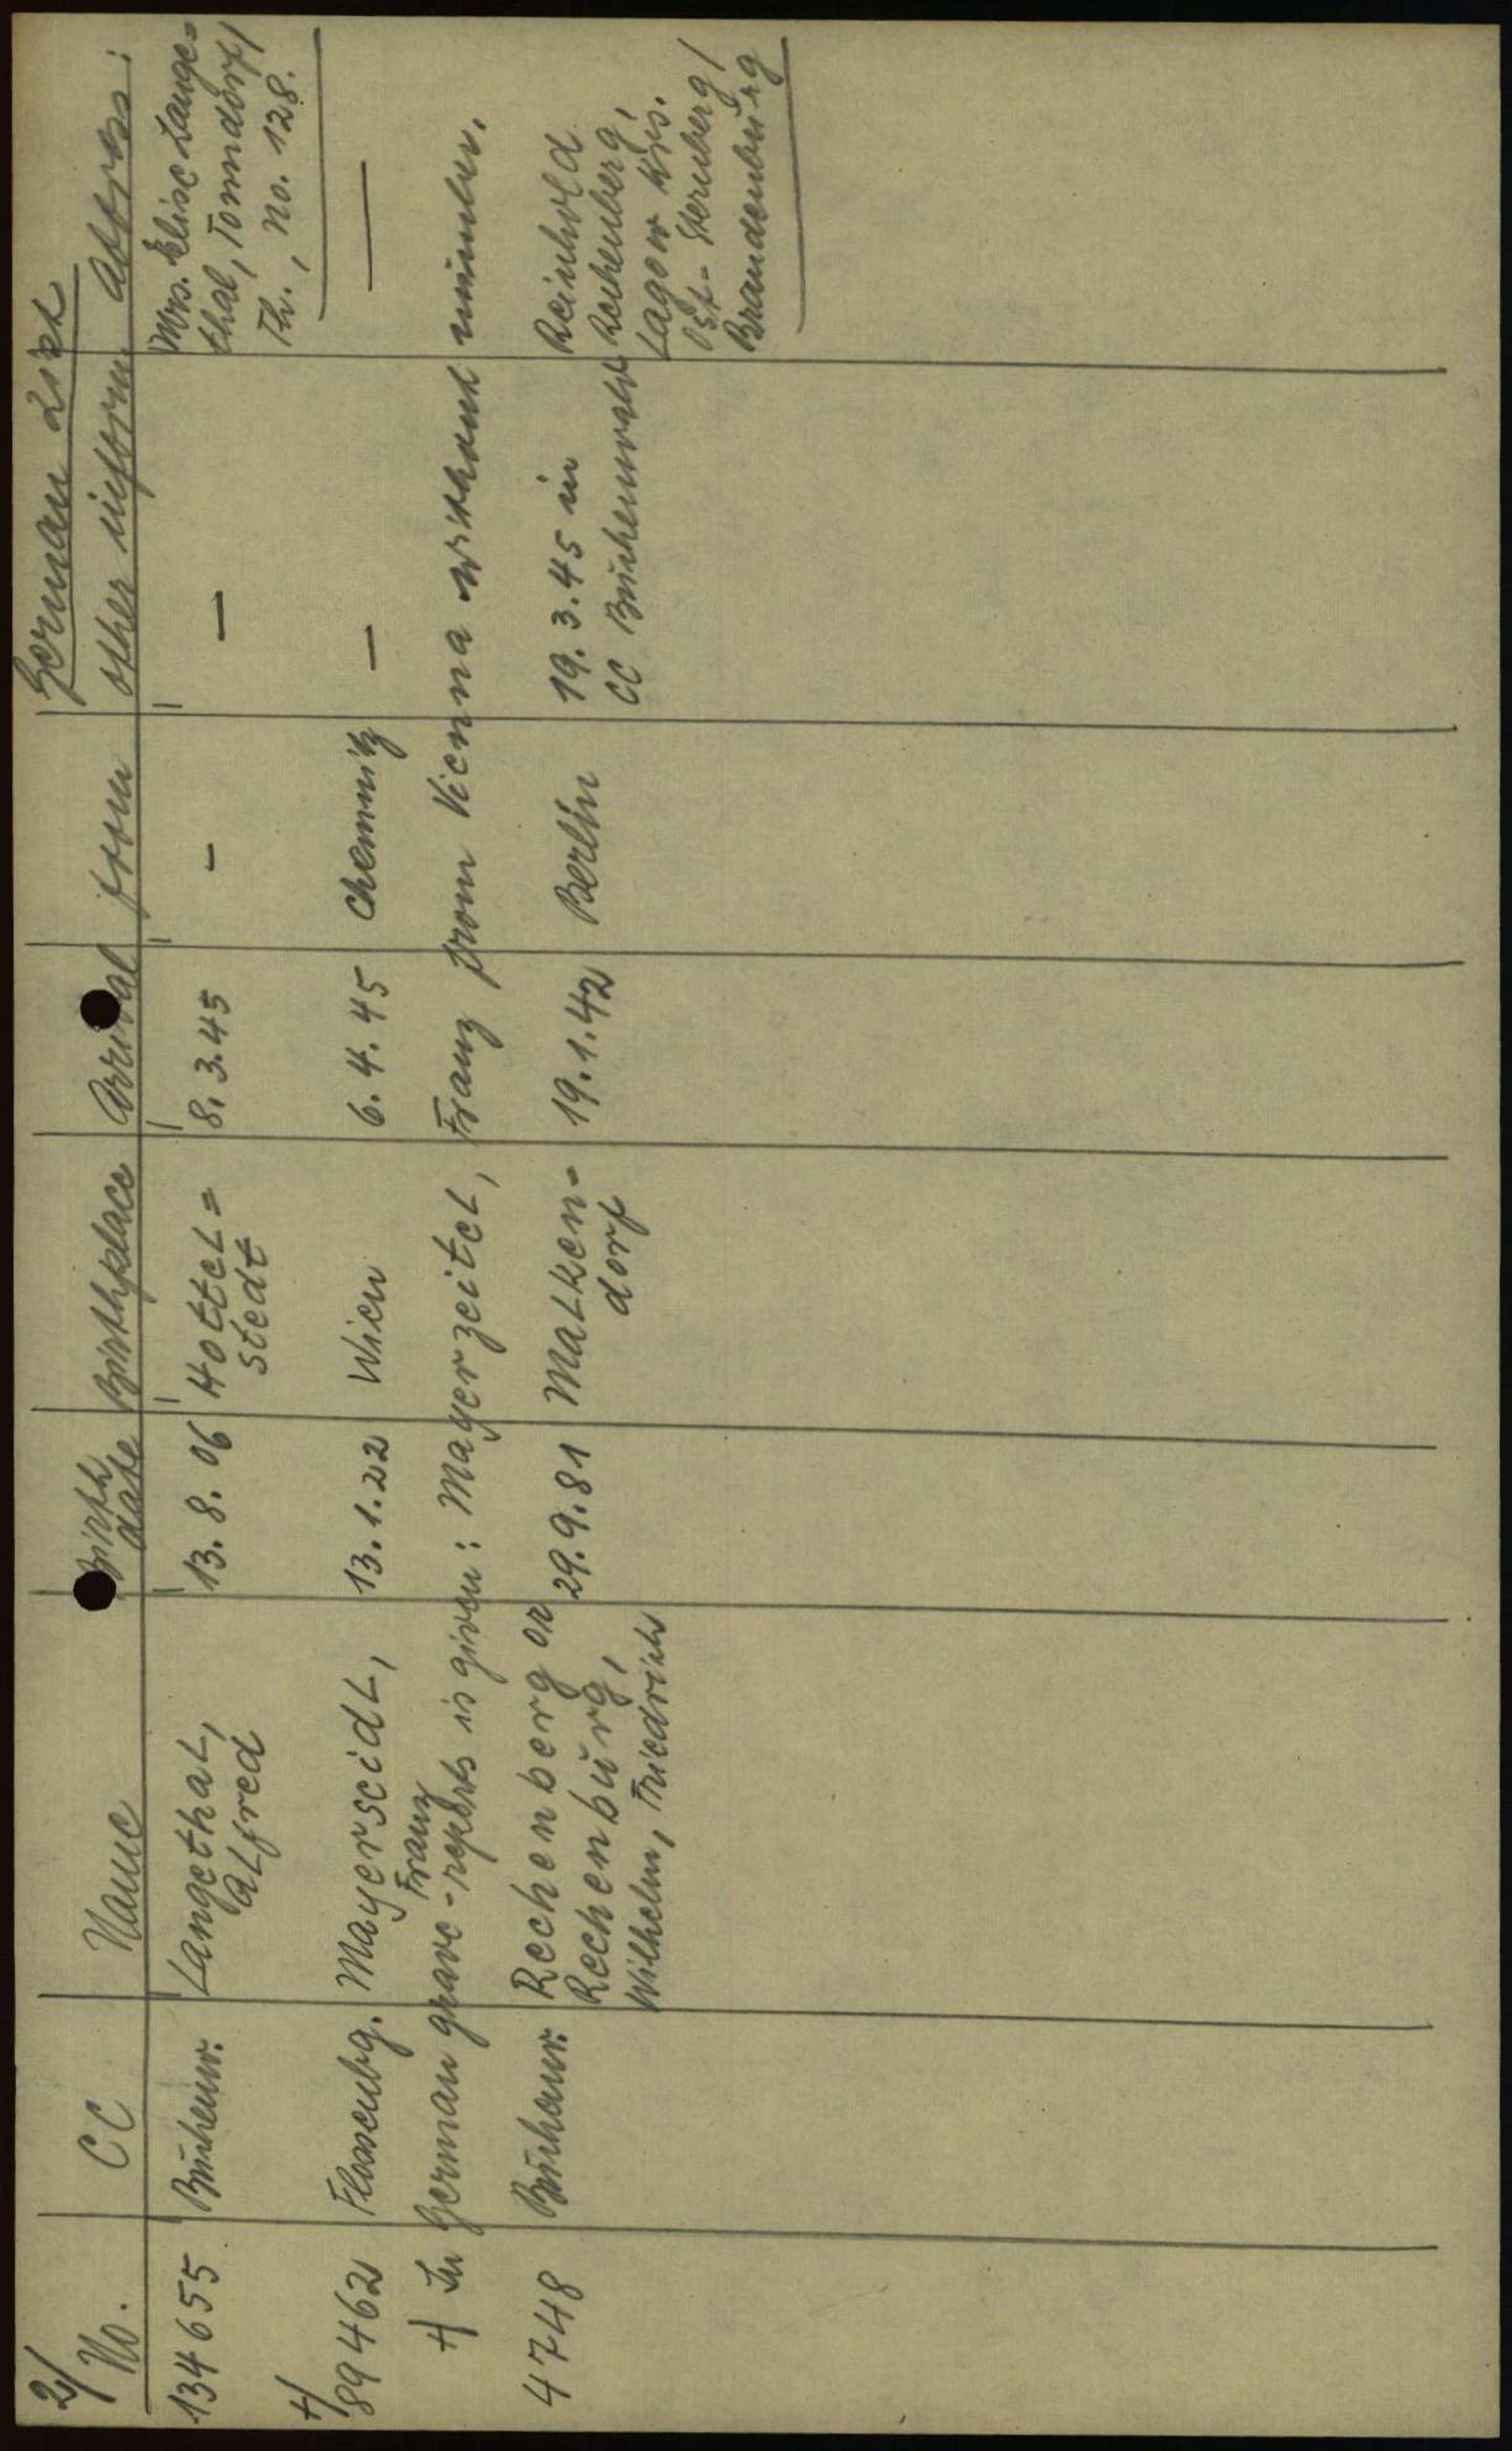 2/ German List
No. CC Name Birth date Birthplace Arrival from other inform. Address:
134655 Buchenw. Langethal, 13.8.06 Hottel= 8.3.45 - — Mrs. Elise Lange=
Alfred stedt thal, Tonndorf/
Th., No. 128.
+/
89462 Flossenbg. Mayerseidl, 13.1.22 Wien 6.4.45 Chemnitz — —
Franz
+/ In German grave-reports is given: Mayerzeitel, Franz from Vienna without number.
4748 Buchenw. Rechenberg or 29.9.81 Malken- 19.1.42 Berlin 19.3.45 in Reinhold
Rechenburg, dorf CC Buchenwald Rechenberg,
Wilhelm, Friedrich Lagow Krs.
Ost-Sternberg/
Brandenburg